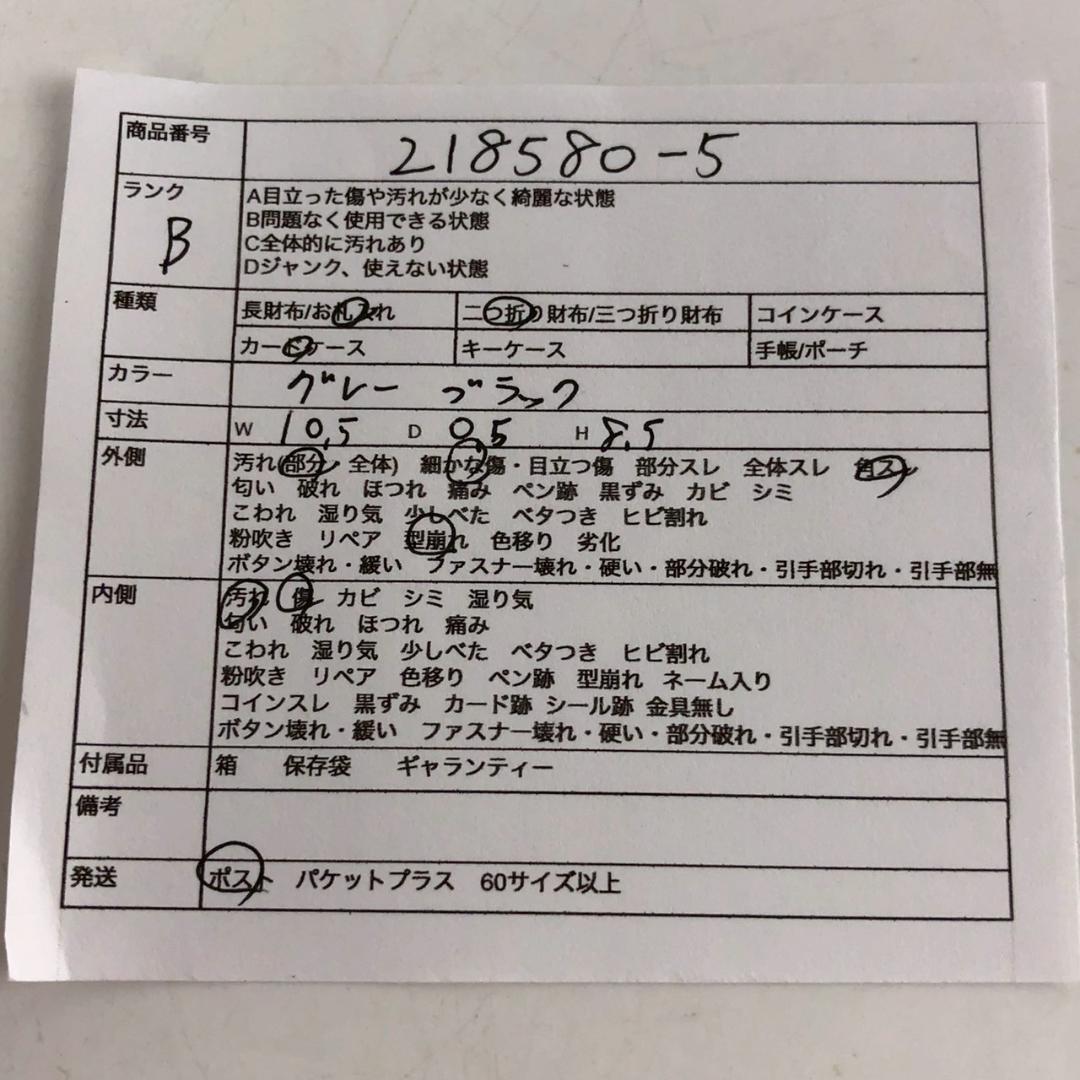 商品番号 218580-5
ランク A目立った傷や汚れが少なく綺麗な状態
B B問題なく使用できる状態
C全体的に汚れあり
Dジャンク、使えない状態
種類 長財布/お札入れ 二つ折り財布/三つ折り財布 コインケース
カードケース キーケース 手帳/ポーチ
カラー グレー ブラック
寸法 W 10,5 D 0,5 H 8,5
外側 汚れ(部分・全体) 細かな傷・目立つ傷 部分スレ 全体スレ 角スレ
匂い 破れ ほつれ 痛み ペン跡 黒ずみ カビ シミ
こわれ 湿り気 少しべた ベタつき ヒビ割れ
粉吹き リペア 型崩れ 色移り 劣化
ボタン壊れ・緩い ファスナー壊れ・硬い・部分破れ・引手部切れ・引手部無
内側 汚れ 傷 カビ シミ 湿り気
匂い 破れ ほつれ 痛み
こわれ 湿り気 少しべた ベタつき ヒビ割れ
粉吹き リペア 色移り ペン跡 型崩れ ネーム入り
コインスレ 黒ずみ カード跡 シール跡 金具無し
ボタン壊れ・緩い ファスナー壊れ・硬い・部分破れ・引手部切れ・引手部無
付属品 箱 保存袋 ギャランティー
備考
発送 ポスト パケットプラス 60サイズ以上